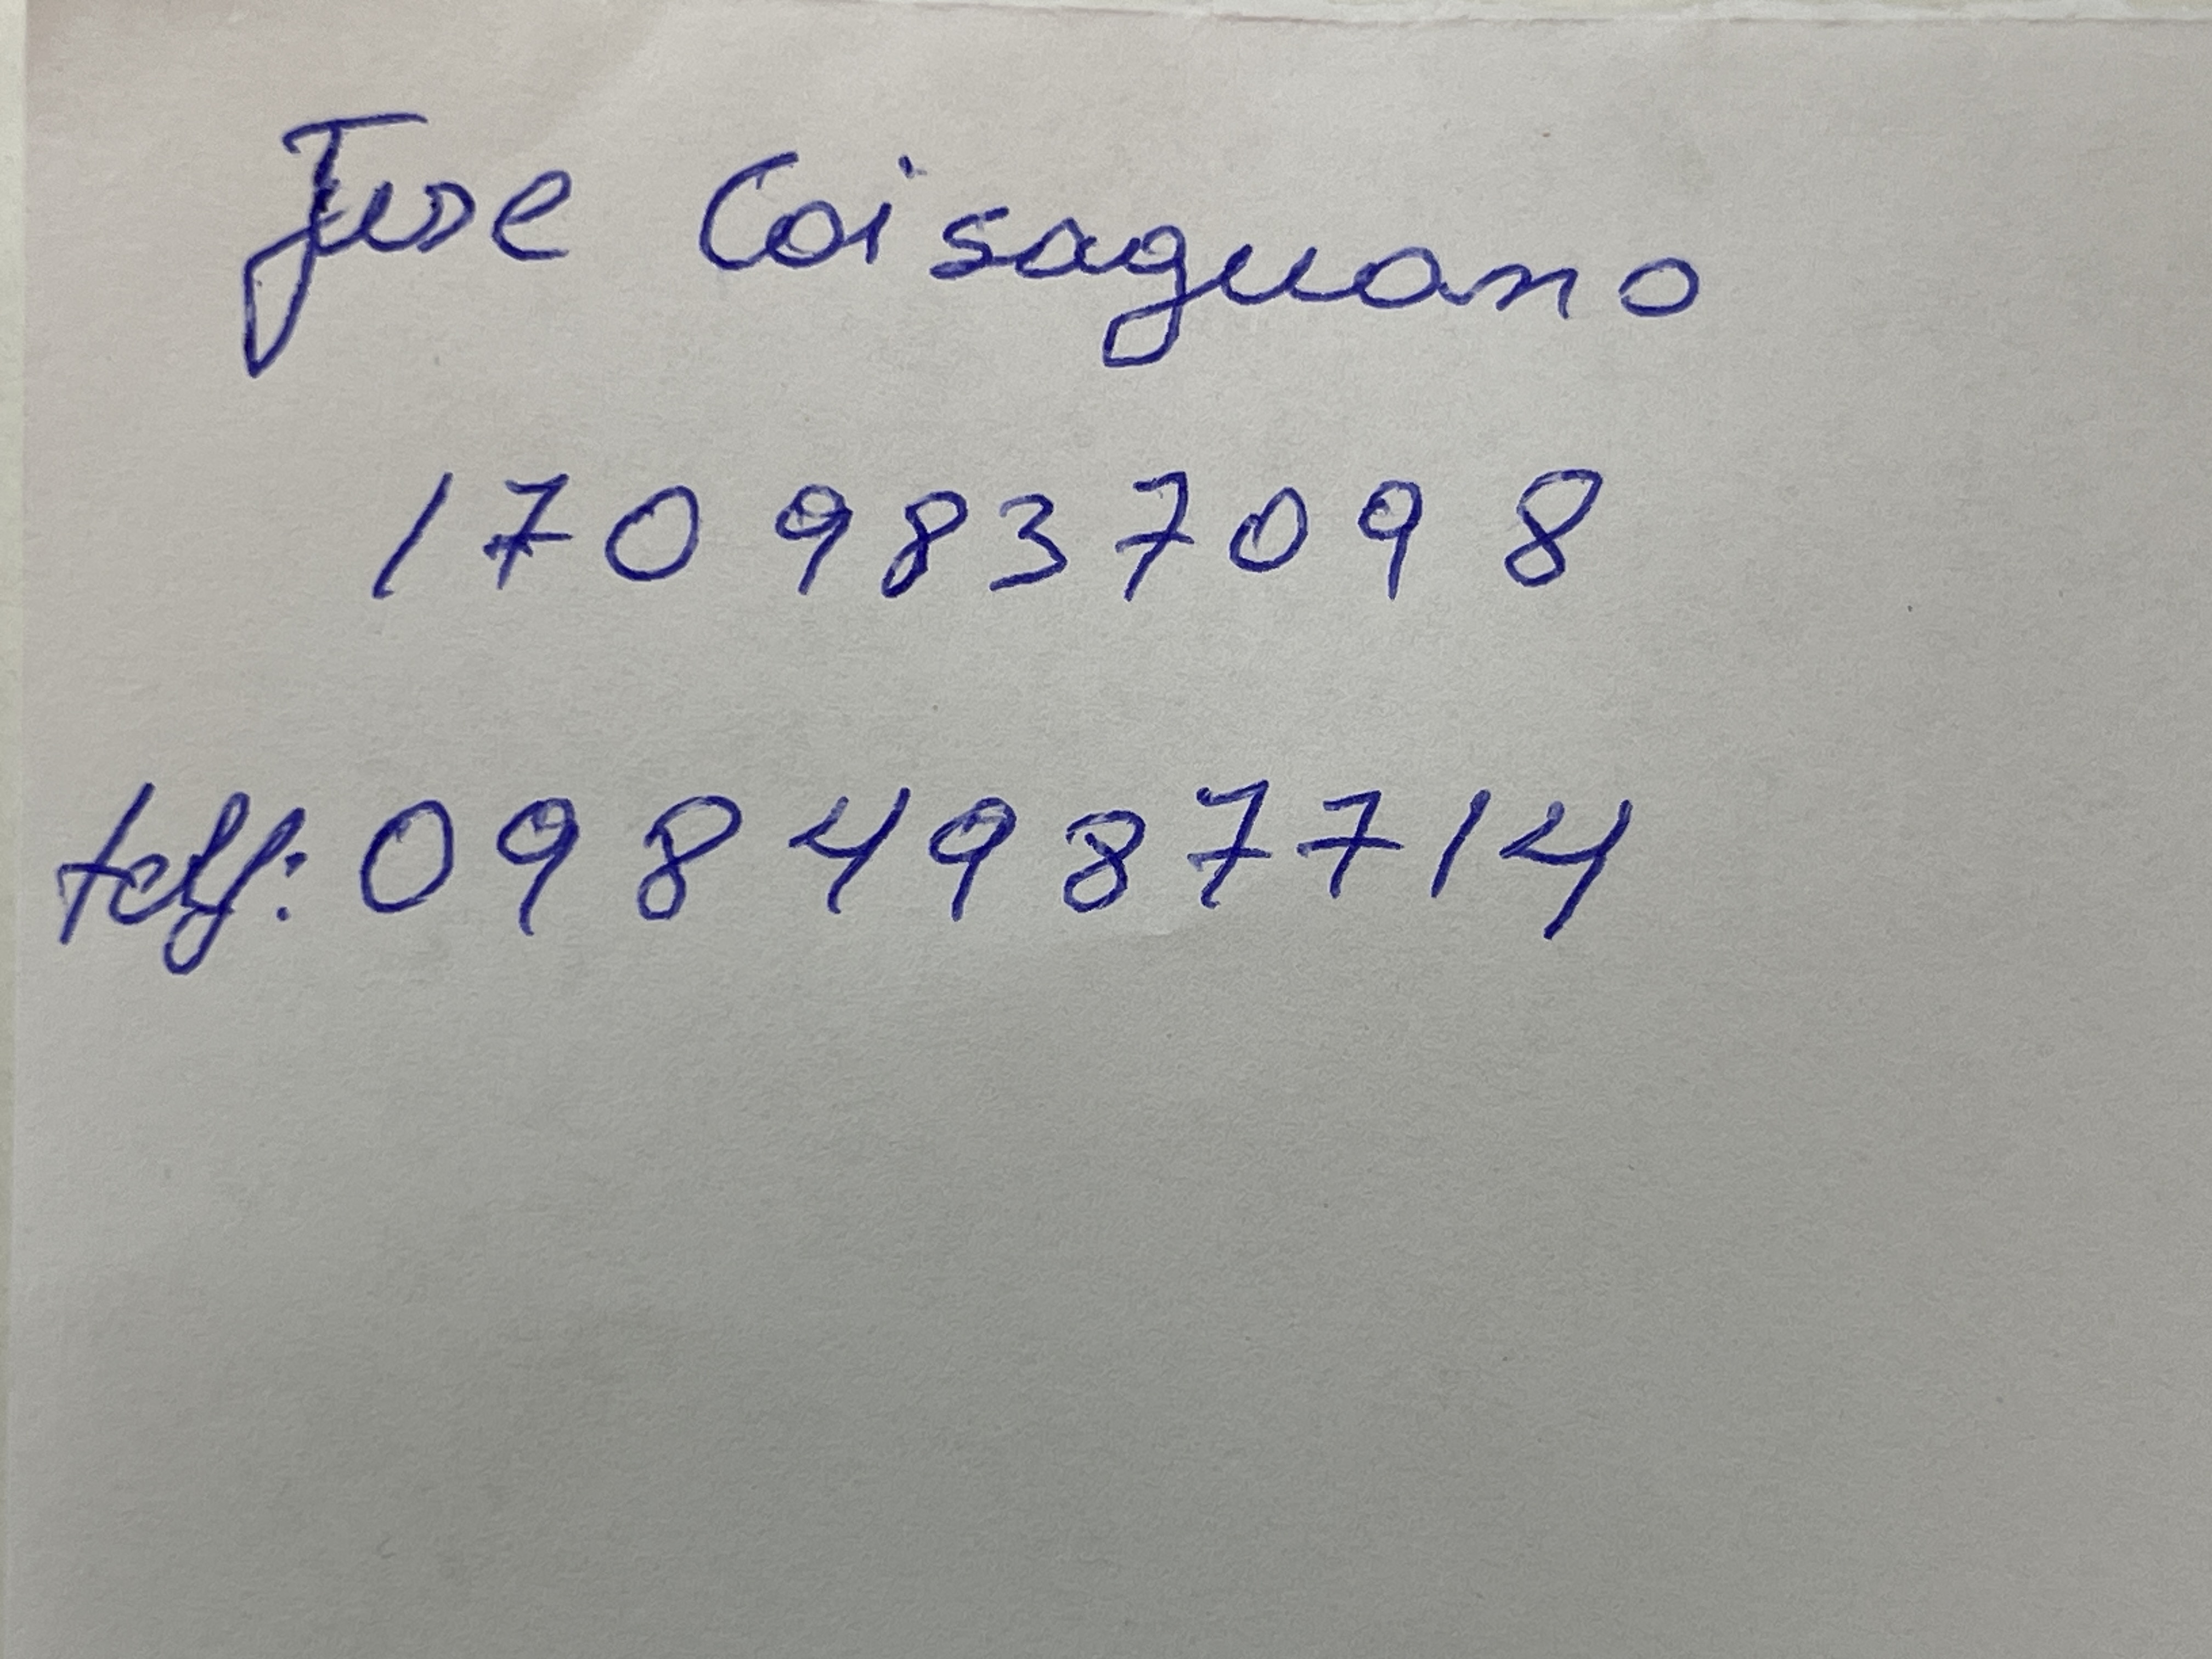 Jose Caisaguano
1709837098
telf: 0984987714